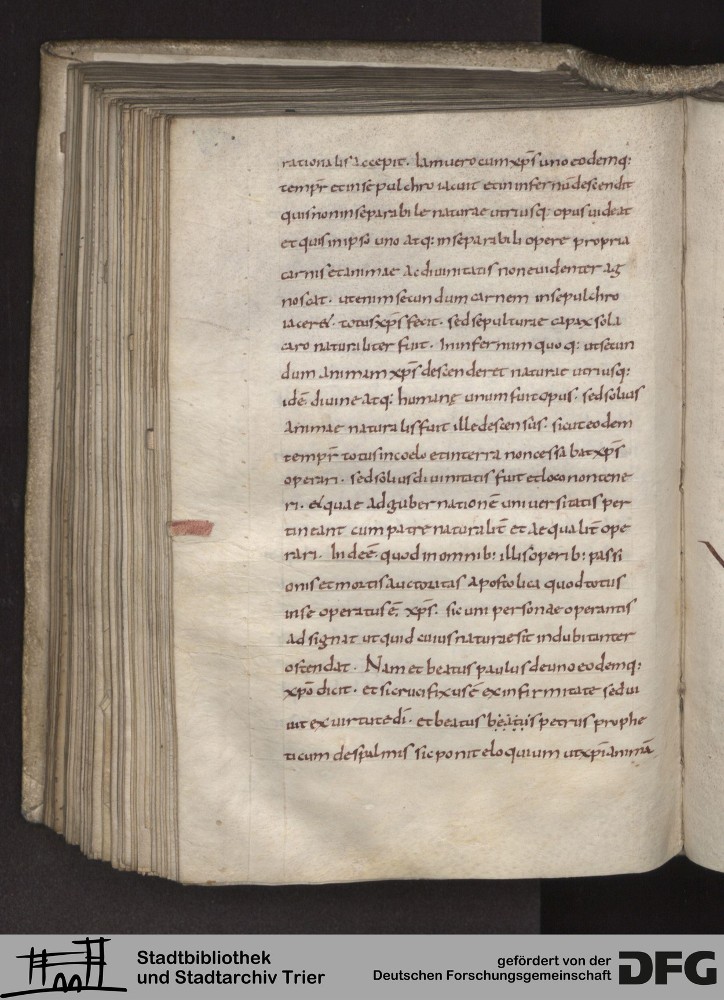 rationalis accepit. Iam uero cum xp̄s uno eodemq:
tempr̄ et in sepulchro iacuit et in infernū descendit
quis non inseparabile naturae utriusq: opus uideat
et quis in ipso uno atq: inseparabili opere propria
carnis et animae ac diuinitatis non euidenter ag
noscat. ut enim secundum carnem in sepulchro
iaceret. totus xp̄s fecit. sed sepulturae capax sola
caro naturaliter fuit. In infernum quoq: ut secun
dum animam xp̄s descenderet naturae utriusq:
idē diuine atq: humanę unum fuit opus. sed solius
animae naturalis fuit ille descensus. sicut eodem
tempr̄ totus in coelo et in terra non cessabat xp̄s
operari. sed solius diuinitatis fuit et loco non tene
ri. et quae ad gubernationē uniuersitatis per
tineant cum patre naturalit̄ et aequalit̄ ope
rari. Inde ē. quod in omnib: illis operib: passi
onis et mortis auctoritas apostolica quod totus
in se operatus ē. xp̄s. sic uni personae operantis
adsignat ut quid cuius naturae sit indubitanter
ostendat. Nam et beatus paulus de uno eodemq:
xp̄o dicit. et si crucifixus ē ex infirmitate sed ui
uit ex uirtute dī. et beatus beatus petrus prophe
ticum de psalmis sic ponit eloquium ut xp̄i animā
Stadtbibliothek
und Stadtarchiv Trier
gefördert von der
Deutschen Forschungsgemeinschaft
DFG